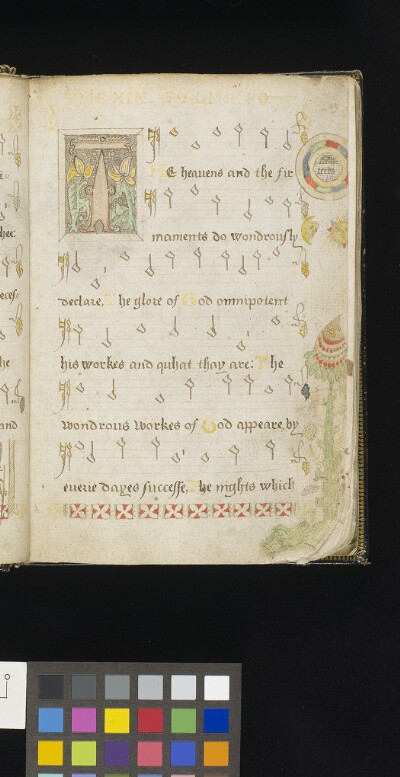 THE heavens and the fir
maments do wondrously
declare, The glore of God omnipotent
his workes and quhat thay are: The
wondrous workes of God appeare, by
everie dayes successe, The nights which
hee:
he
and